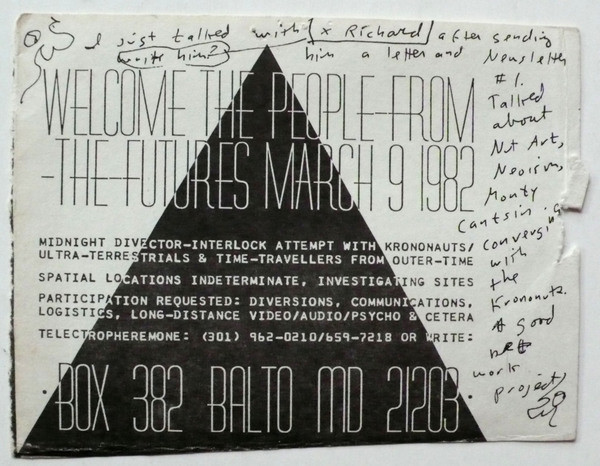 I just talked with [x Richard] after sending
write him? him a letter and Newsletter
#1.
Talked
about
Nut Art,
Neoism,
Monty
Cantsin is
converging
with
the
Krononuts.
A good
net
work
project,
WELCOME THE PEOPLE-FROM
-THE-FUTURES MARCH 9 1982
MIDNIGHT DIVECTOR-INTERLOCK ATTEMPT WITH KRONONAUTS/
ULTRA-TERRESTRIALS & TIME-TRAVELLERS FROM OUTER-TIME
SPATIAL LOCATIONS INDETERMINATE, INVESTIGATING SITES
PARTICIPATION REQUESTED: DIVERSIONS, COMMUNICATIONS,
LOGISTICS, LONG-DISTANCE VIDEO/AUDIO/PSYCHO & CETERA
TELECTROPHEREMONE: (301) 962-0210/659-7218 OR WRITE:
· BOX 382 BALTO MD 21203 ·